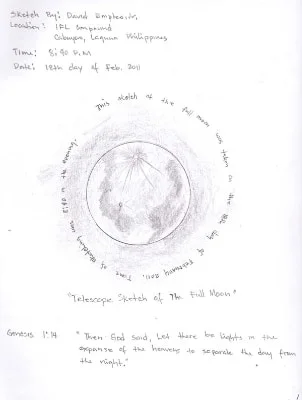 Sketch By: David
Location: IFL Compound
Cabuyao, Laguna Philippines
Time: 8:40 P.M
Date: 18th day of Feb. 2011
This sketch of the full moon was taken on the 18th day of February 2011. Time of sketching was 8:40 in the evening.
"Telescope Sketch of The Full Moon"
Genesis 1:14 "Then God said, Let there be lights in the
expanse of the heavens to separate the day from
the night."